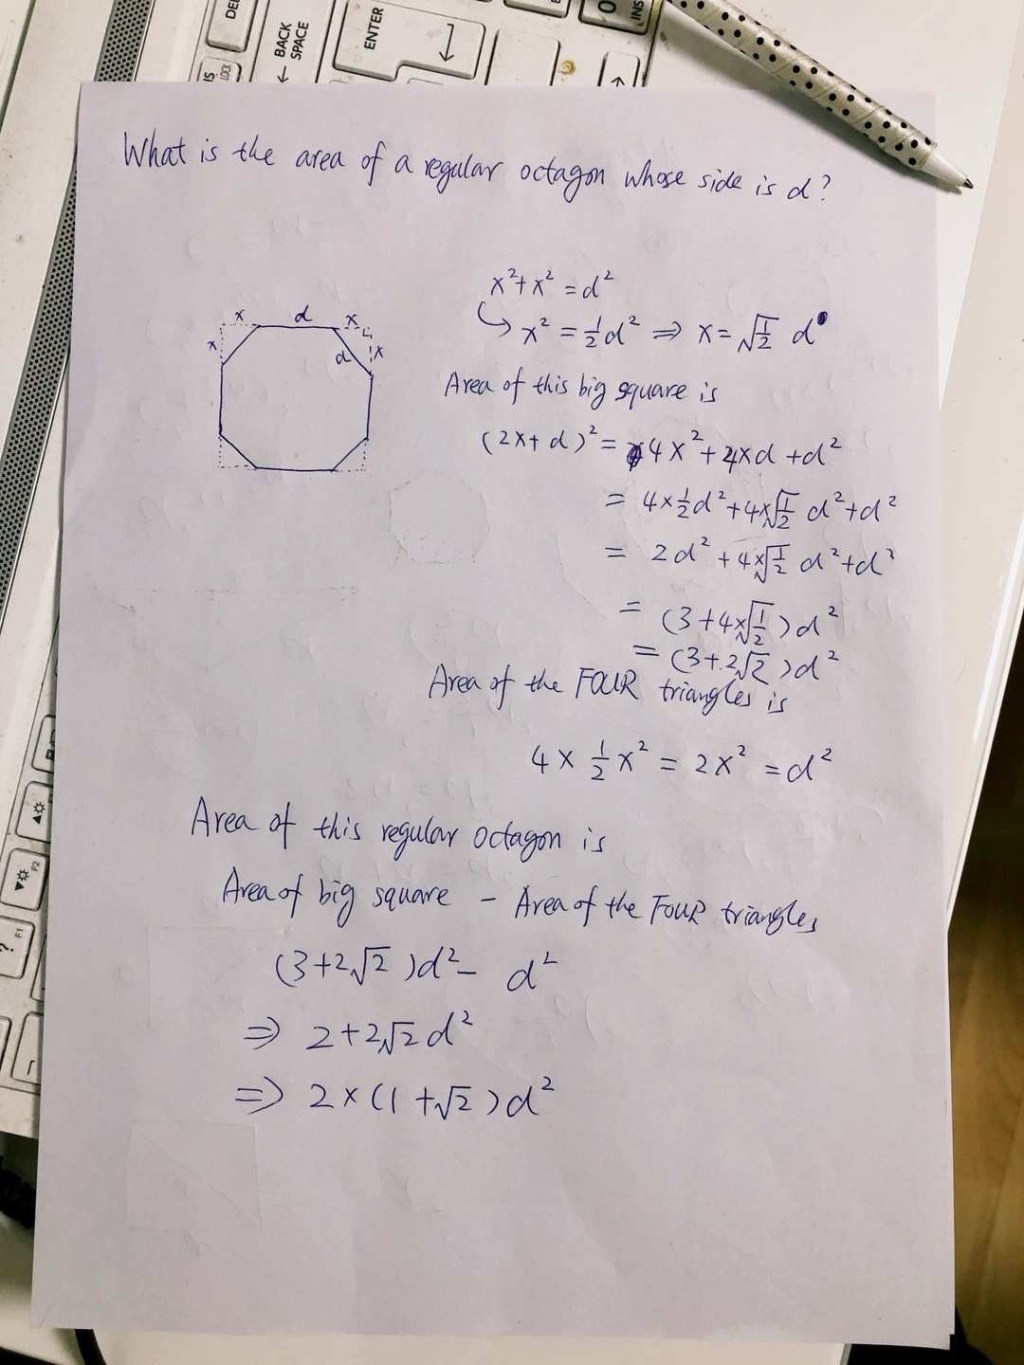 DEL
BACK
SPACE
ENTER
INS
LOCK
What is the area of a regular octagon whose side is d?
x d x
x d x
x²+x² = d²
↳ x² = ½d² ⇒ x = √½ d
Area of this big square is
(2x+d)² = 4x²+4xd+d²
= 4×½d²+4×√½ d²+d²
= 2d²+4×√½ d²+d²
= (3+4×√½)d²
= (3+2√2)d²
Area of the FOUR triangles is
4 × ½x² = 2x² = d²
Area of this regular octagon is
Area of big square – Area of the FOUR triangles
(3+2√2)d² – d²
⇒ 2+2√2d²
⇒ 2×(1+√2)d²
F2
F1